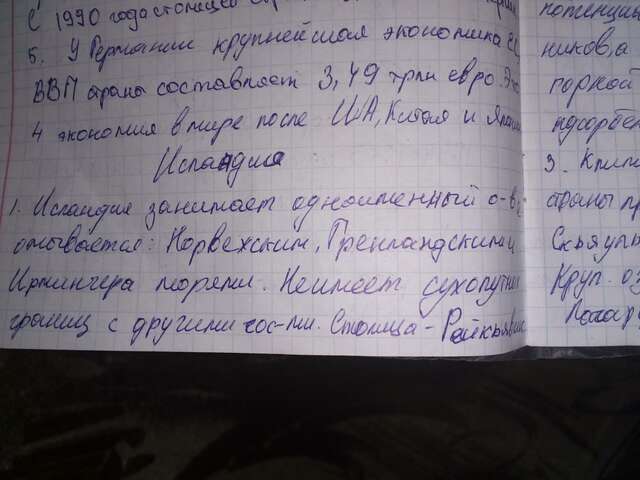 С 1990 года столицей
5. У Германии крупнейшая экономика ЕС
ВВП страны составляет 3,49 трлн евро. Это
4 экономия в мире после США, Китая и Японии
Исландия
1. Исландия занимает одноименный о-в,
омывается: Норвежским, Гренландским и
Ирмингера морями. Неимеет сухопутных
границ с другими гос-ми. Столица - Рейкьявик
потенци
ников, а
горкой
3. Кли
страны пр
Круп. оз